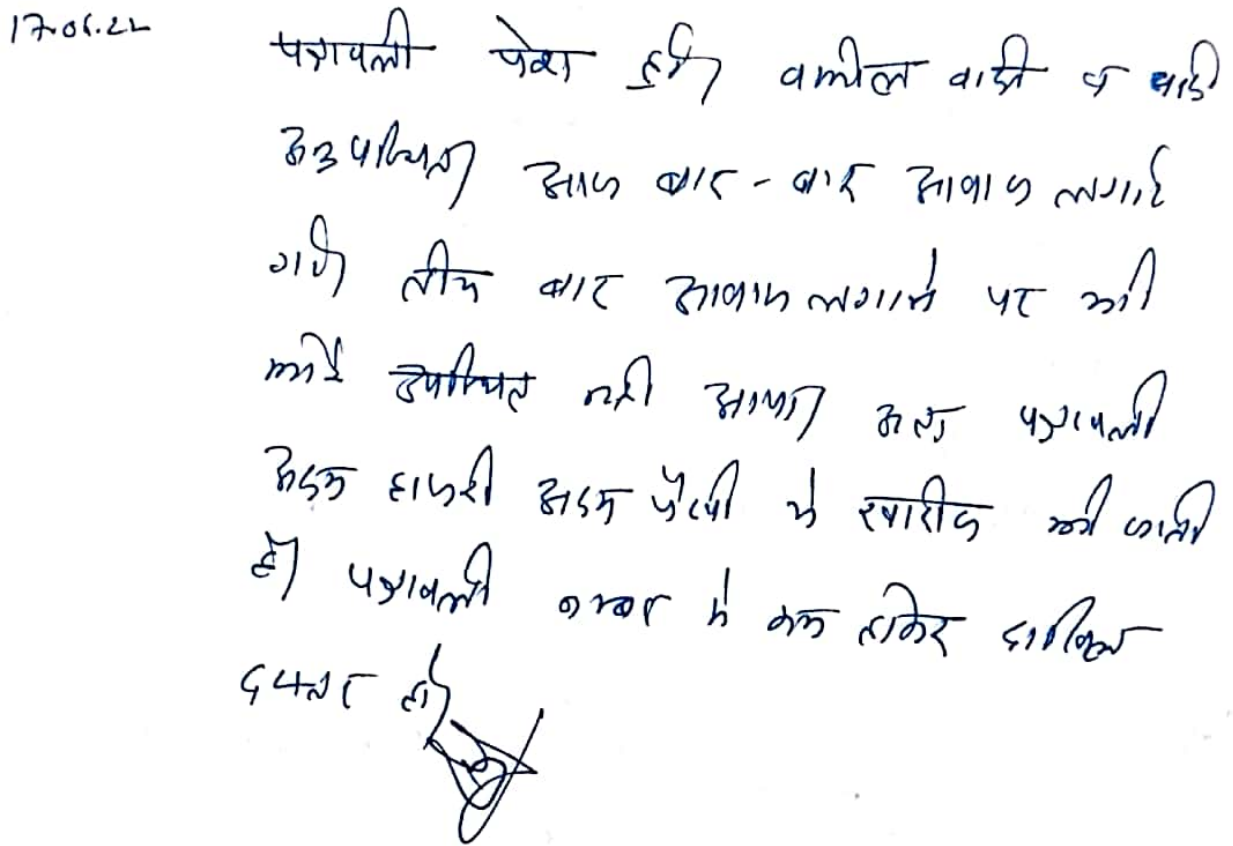 17.06.22
पत्रावली पेश हुई। वकील वादी व वादी
अनुपस्थित। आज बार-बार आवाज लगाई
गयी। तीन बार आवाज लगाने पर भी
कोई उपस्थित नही आया। अतः पत्रावली
अदम हाजरी अदम पैरवी में खारीज की जाती
है। पत्रावली नम्बर में कम होकर दाखिल
दफ्तर हो।